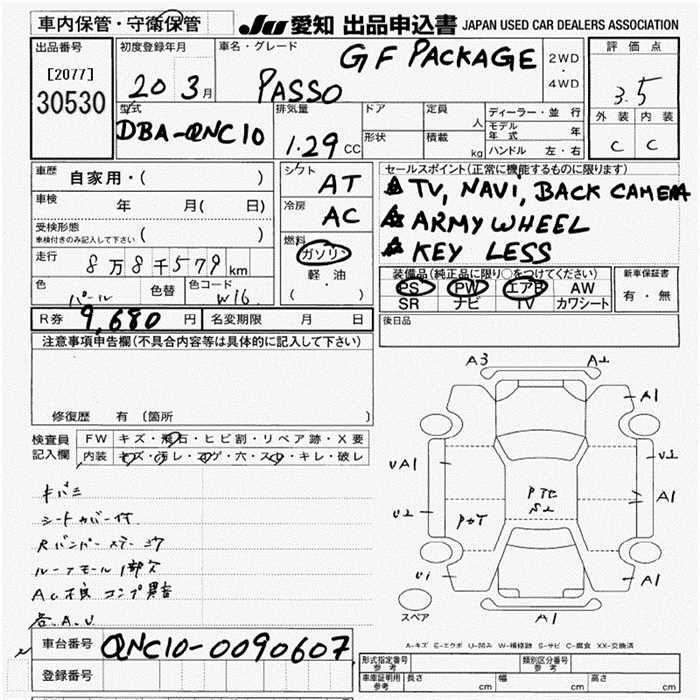 車内保管・守衛保管
JU 愛知 出品申込書 JAPAN USED CAR DEALERS ASSOCIATION
出品番号
[2077]
30530
初度登録年月
20 3月
車名・グレード
GF PACKAGE
PASSO
2WD
・
4WD
評価点
3.5
外装 内装
C C
型式
DBA-QNC10
排気量
1.29 CC
ドア
形状
定員 人
積載 kg
ディーラー・並行
モデル年式 年
ハンドル 左・右
車歴
自家用・( )
車検 年 月( 日)
受検形態
車検付きのみ記入して下さい ( )
走行
8万8千579km
色
パール
色替
色コード
W16
シフト
AT
冷房
AC
燃料
ガソリン
軽油
( ・ )
セールスポイント(正常に機能するものに限ります)
☆ TV, NAVI, BACK CAMERA
☆ ARMY WHEEL
☆ KEY LESS
装備品(純正品に限り○をつけてください)
PS PW エアB AW
SR ナビ TV カワシート
新車保証書
有・無
後日品
R券 9,680円
名変期限 月 日
注意事項申告欄(不具合内容等は具体的に記入して下さい)
修復歴 有 (箇所 )
検査員記入欄
FW キズ・飛石・ヒビ割・リペア跡・X要
内装 キズ・汚レ・コゲ・穴・スレ・キレ・破レ
キバミ
シートカバー付
ルーフモール1部欠
A3
A1
UA1
A1
A1
A1
スペア
A-キズ E-エクボ U-凹み W-補修跡 S-サビ C-腐食 XX-交換済
車台番号
QNC10-0090607
登録番号
形式指定番号
参考
類別区分番号
参考
車庫証明用
参考
長さ cm
幅 cm
高さ cm